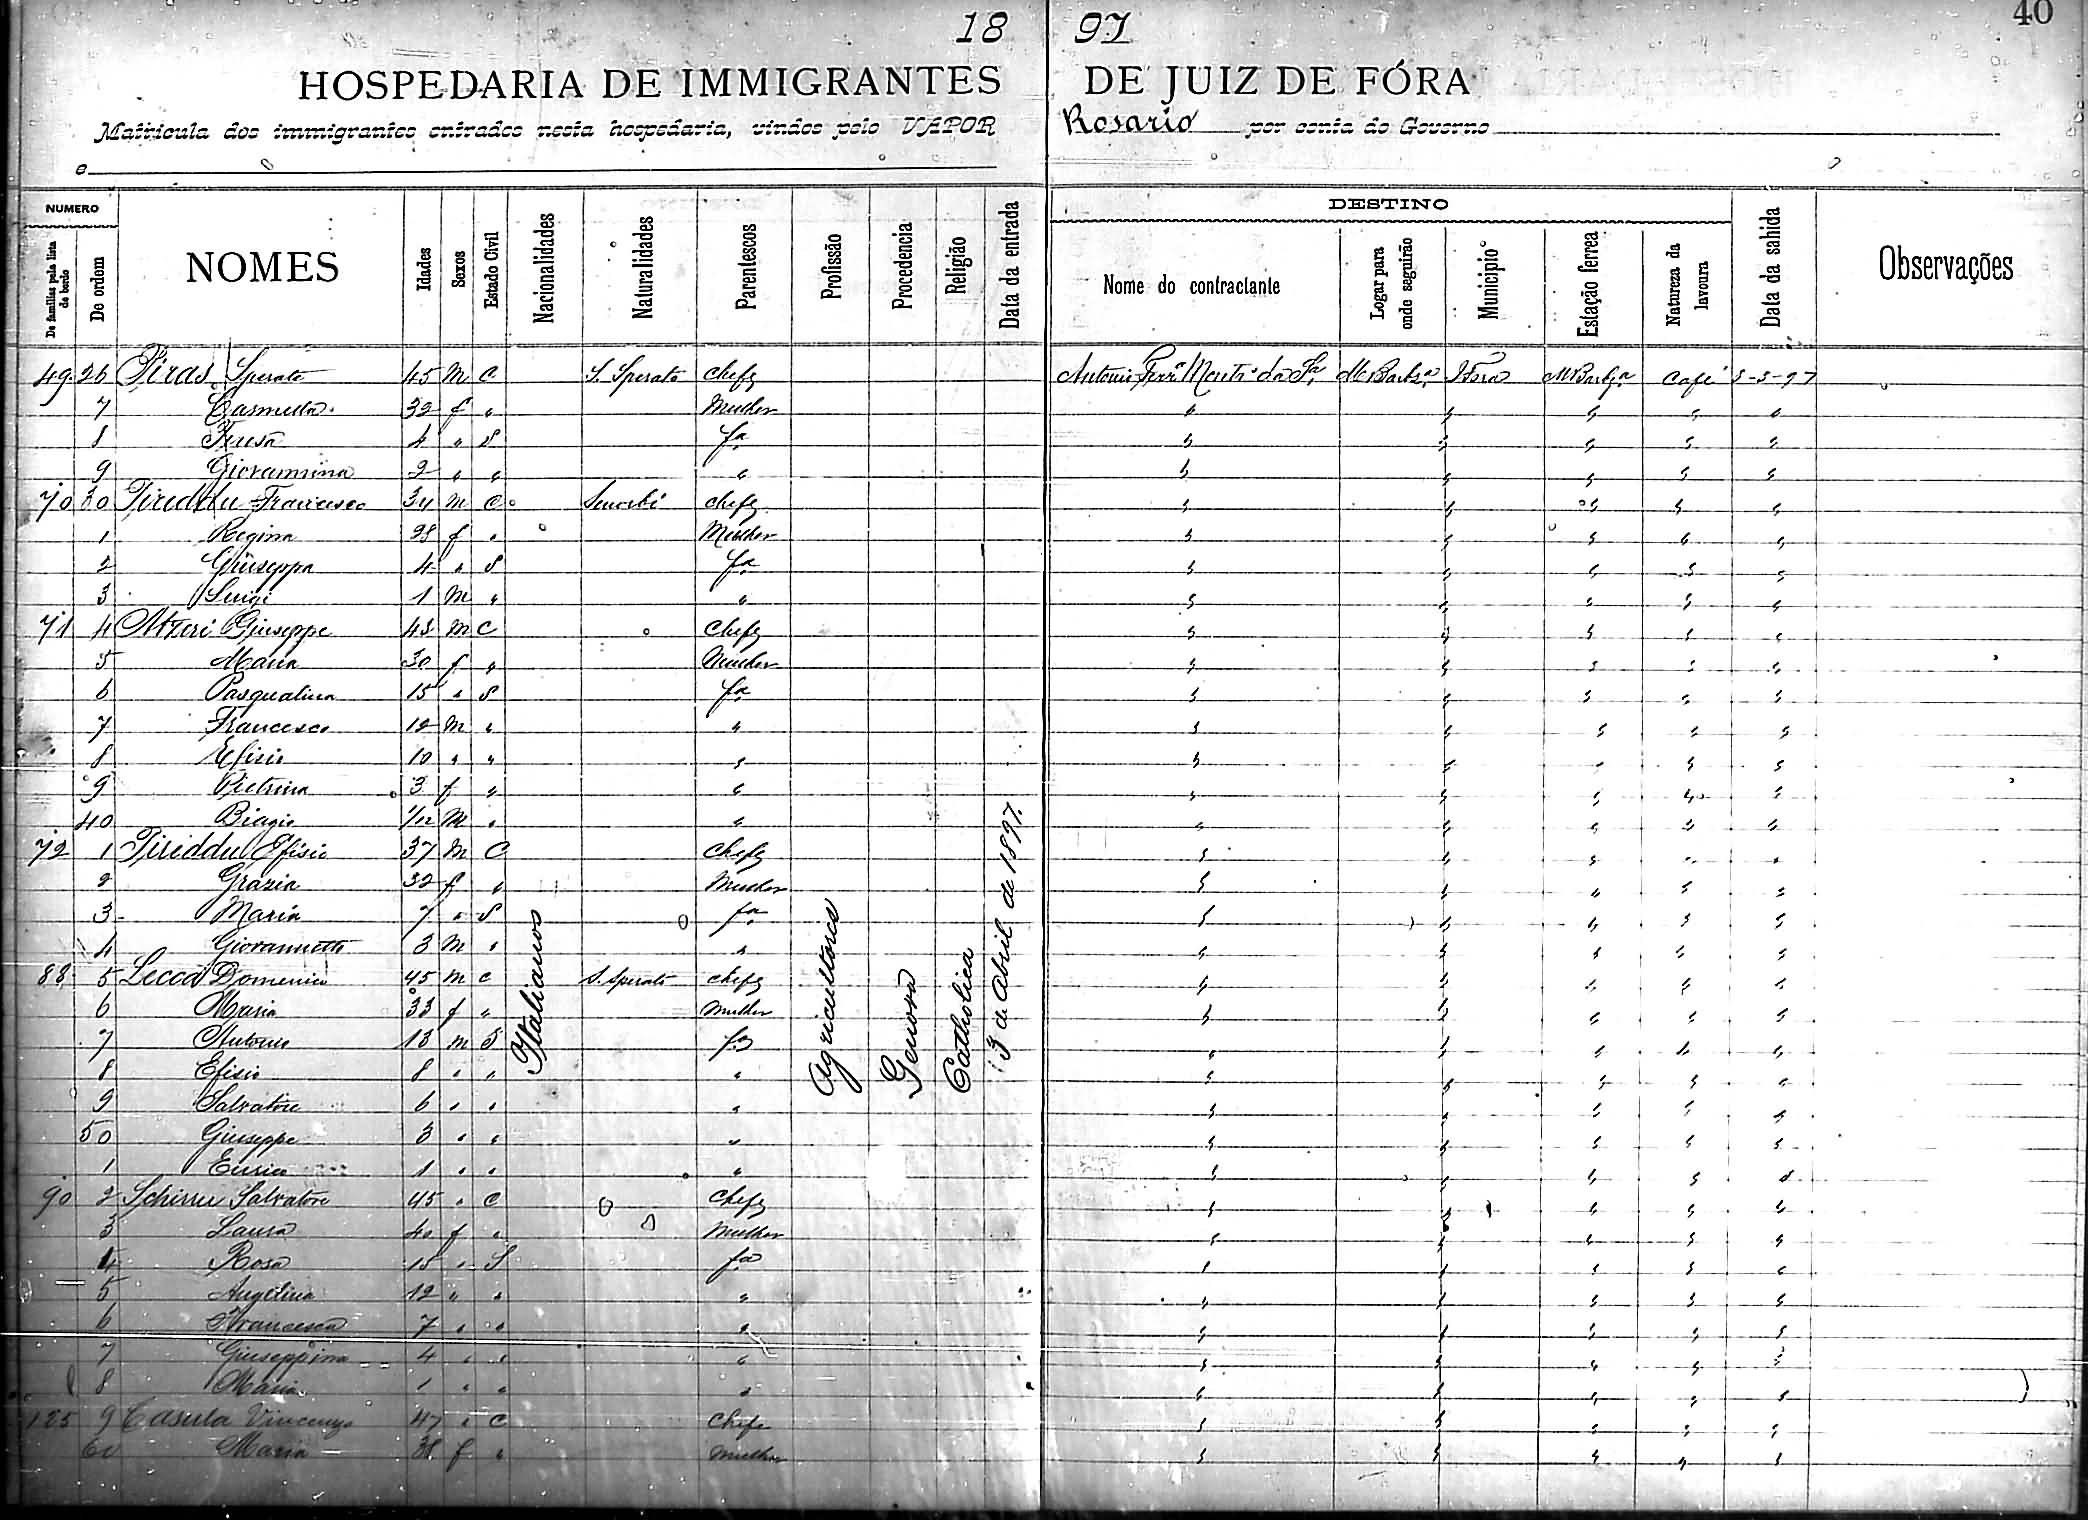 40
18 97
HOSPEDARIA DE IMMIGRANTES DE JUIZ DE FÓRA
Matricula dos immigrantes entrados nesta hospedaria, vindos pelo VAPOR Rosario por conta do Governo
e
NUMERO
De familias pela lista de bordo
De ordem
NOMES
Idades
Sexos
Estado Civil
Nacionalidades
Naturalidades
Parentescos
Profissão
Procedencia
Religião
Data da entrada
DESTINO
Nome do contractante
Logar para onde seguirão
Municipio
Estação ferrea
Natureza da lavoura
Data da sahida
Observações
49 26 Piras Sperato 45 M C S. Sperato Chefe Antonio da Sa. Café 5-5-97
7 Carmella 32 f " Mulher " " " " "
8 Teresa 4 " S fa " " " " "
9 Giovannina 2 " " " " " " " "
70 30 Pireddu Francesco 34 M C Senorbi chefe " " " " "
1 Regina 28 f " Mulher " " " " "
2 Giuseppa 4 " S fa " " " " "
3 Luigi 1 M " " " " " " "
71 4 Atzeri Giuseppe 43 M C Chefe " " " " "
5 Maria 30 f " Mulher " " " " "
6 Pasqualina 15 " S fa " " " " "
7 Francesco 12 M " " " " " " "
8 Efisio 10 " " " " " " " "
9 Pietrina 3 f " " " " " " "
40 Biagio 1/12 M " " " " " " "
72 1 Piriddu Efisio 37 M C Chefe " " " " "
2 Grazia 32 f " Mulher " " " " "
3 Maria 7 " S fa " " " " "
4 Giovannetti 3 M " " " " " " "
88 5 Lecca Domenico 45 M C S. Sperato chefe " " " " "
6 Maria 33 f " Mulher " " " " "
7 Antonio 13 M S fo " " " " "
8 Efisio 8 " " " " " " " "
9 Salvatore 6 " " " " " " " "
50 Giuseppe 3 " " " " " " " "
1 1 " " " " " " " "
90 2 Schirru Salvatore 45 " C Chefe " " " " "
3 Laura 40 f " Mulher " " " " "
4 Rosa 15 " S fa " " " " "
5 Angelina 12 " " " " " " " "
6 Francesca 7 " " " " " " " "
7 Giuseppina 4 " " " " " " " "
8 Maria 1 " " " " " " " "
125 9 Casula Vincenzo 47 " C Chefe " " " " "
60 Maria 38 f " Mulher " " " " "
Italianos
Agricultores
Genova
Catholica
13 de Abril de 1897.